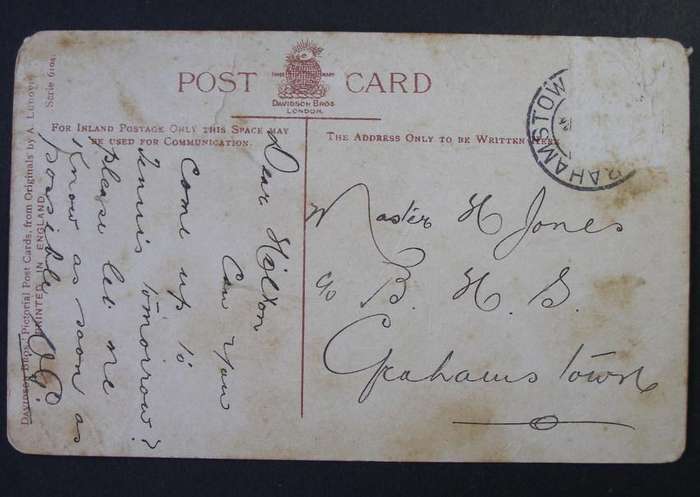 POST CARD
DAVIDSON BROS.
LONDON.
FOR INLAND POSTAGE ONLY THIS SPACE MAY
BE USED FOR COMMUNICATION.
THE ADDRESS ONLY TO BE WRITTEN HERE
RAHAMSTOW
Dear Hilton
Can you
come up to
Tennis tomorrow?
please let me
Know as soon as
possible
Master H Jones
c/o B. H. S.
Grahamstown
Davidson Bros.' Pictorial Post Cards, from Originals by A.
Serie 6101
PRINTED IN ENGLAND